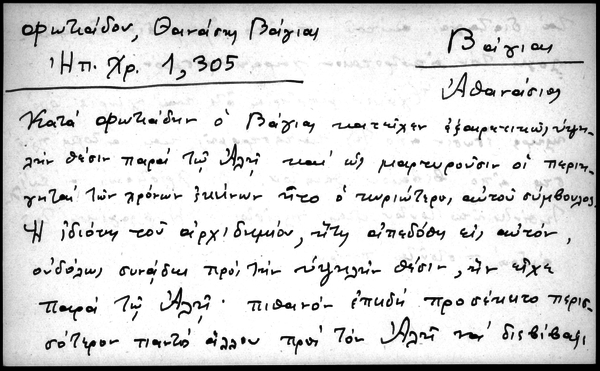 Φωτιάδου, Θανάσης Βάγιας
Ἠπ. Χρ. 1,305
Βάγιας
Ἀθανάσιος
Κατὰ Φωτιάδην ὁ Βάγιας κατεῖχεν ἐξαιρετικῶς ὑψη-
λὴν θέσιν παρὰ τῷ Ἀλῇ καὶ ὡς μαρτυροῦσιν οἱ περιη-
γηταὶ τῶν χρόνων ἐκείνων ἦτο ὁ κυριώτερος αὐτοῦ σύμβουλος.
Ἡ ἰδιότης τοῦ ἀρχιδημίου, ἥτις ἀπεδόθη εἰς αὐτόν,
οὐδόλως συνᾴδει πρὸς τὴν ὑψηλὴν θέσιν, ἣν εἶχε
παρὰ τῷ Ἀλῇ· πιθανὸν ἐπειδὴ προσέκειτο περισ-
σότερον παντὸς ἄλλου πρὸς τὸν Ἀλῆ καὶ διεβίβαζε